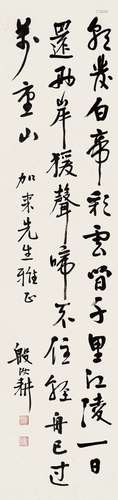 朝發白帝彩雲間千里江陵一日
還兩岸猿聲啼不住輕舟已過
萬重山
加来先生雅正
殷汝耕